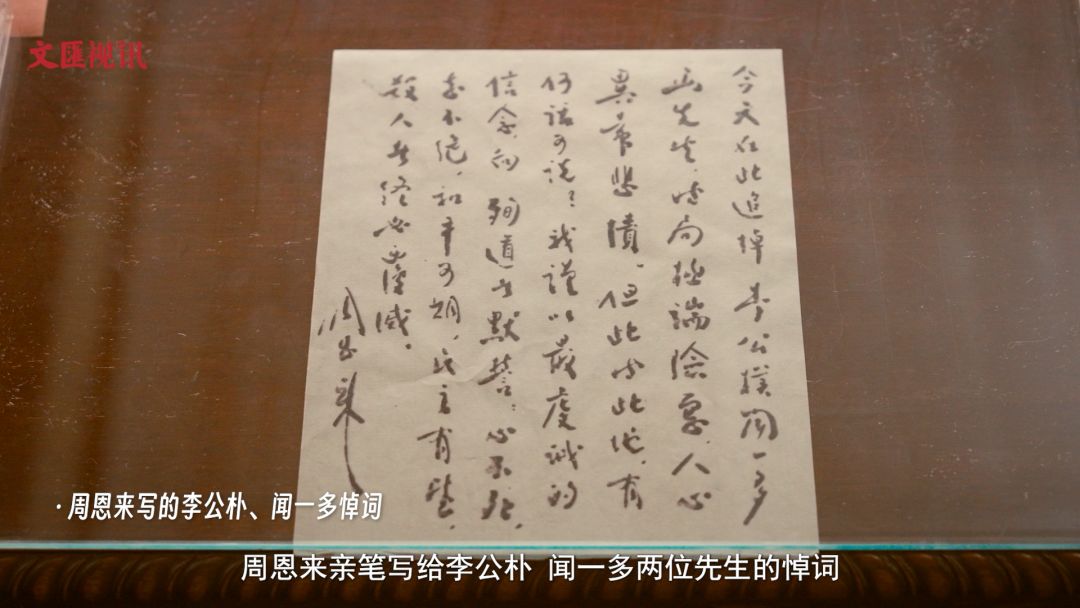 文匯视讯
今天在此追悼 李公樸聞一多
兩先生,時局極端險惡,人心
異常悲憤,但此時此地,有
何話可說?我謹以最虔誠的
信念,向殉道者默誓:心不死,
志不絕,和平可期,民主有望,
殺人者終必覆滅。
周恩來
·周恩来写的李公朴、闻一多悼词
周恩来亲笔写给李公朴 闻一多两位先生的悼词